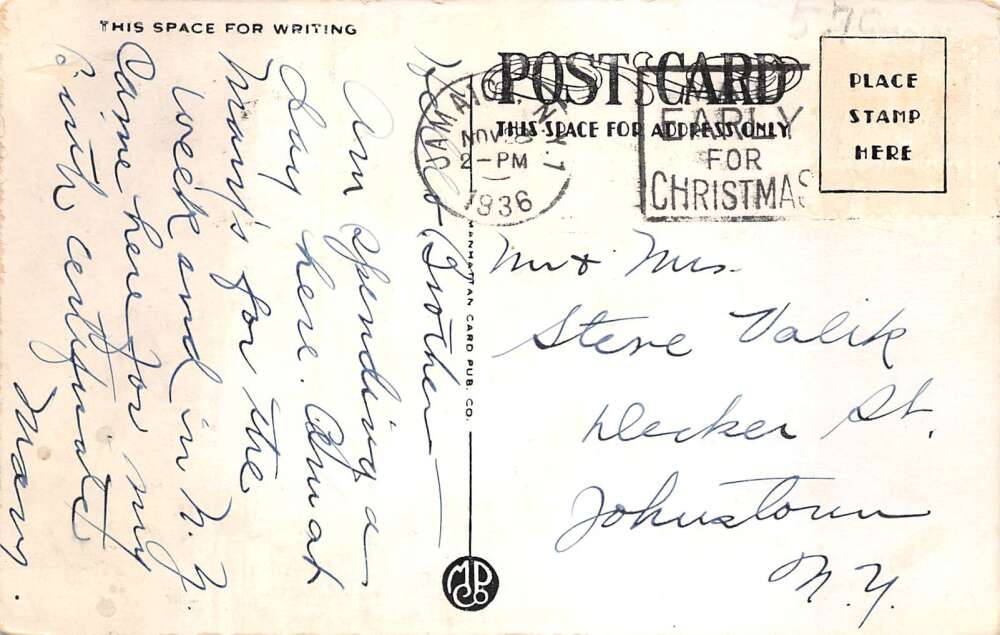 THIS SPACE FOR WRITING
Hello Brother —
Am spending a
day here. Am at
Mary's for the
week end in N.Y.
Came here for my
Birth certificate
Mary.
5.70
POST CARD
THIS SPACE FOR ADDRESS ONLY
PLACE
STAMP
HERE
JAMAICA, N.Y. 7
NOV
2-PM
1936
EARLY
FOR
CHRISTMAS
Mr & Mrs.
Steve Valik
Decker St.
Johnstown
N.Y.
MANHATTAN CARD PUB. CO.